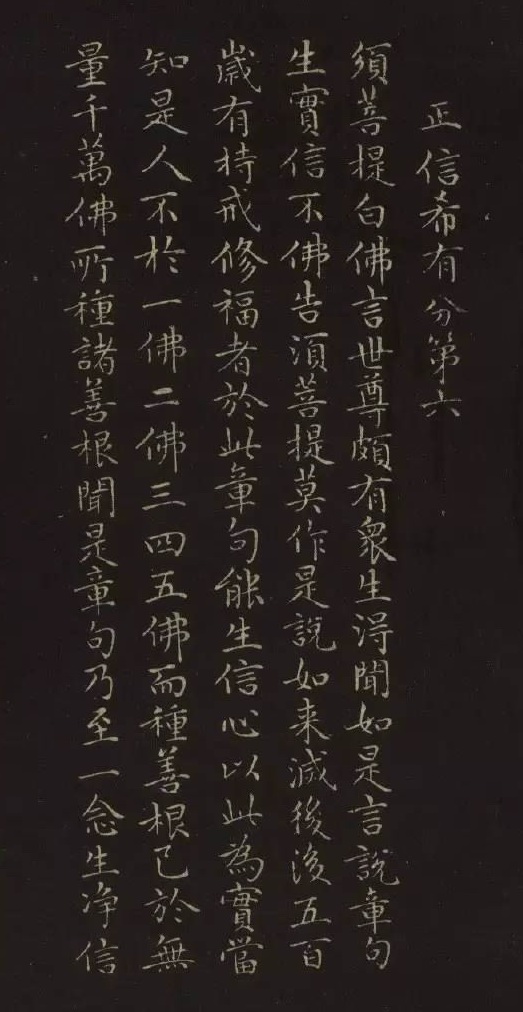 正信希有分第六
須菩提白佛言世尊頗有衆生淂聞如是言說章句
生實信不佛告湏菩提莫作是說如来滅後後五百
歲有持戒修福者於此章句能生信心以此為實當
知是人不於一佛二佛三四五佛而種善根已於無
量千萬佛所種諸善根聞是章句乃至一念生净信